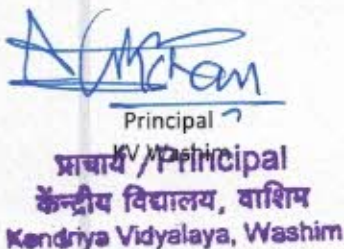 Principal
KV Washim
प्राचार्य / Principal
केन्द्रीय विद्यालय, वाशिम
Kendriya Vidyalaya, Washim